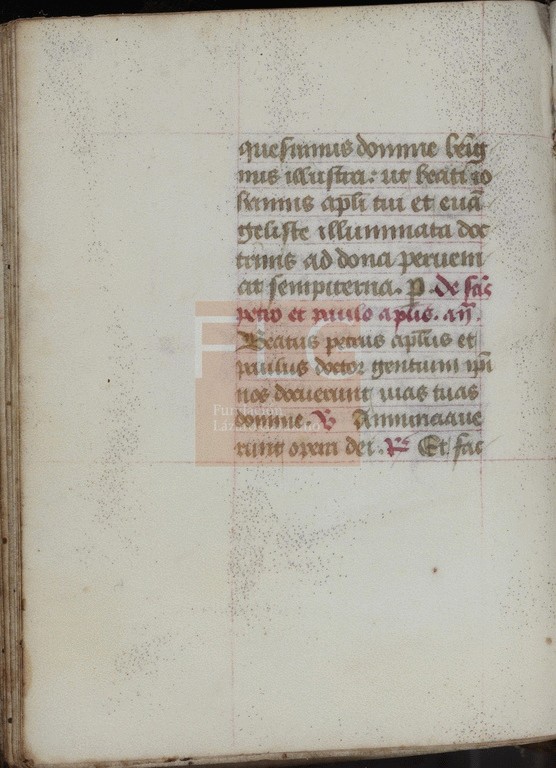 quesumus domine benig
nus illustra: ut beati io
hannis apl̃i tui et euã
geliste illuminata doc
trinis ad dona perueni
at sempiterna. p̱. de sãs
petro et paulo apl̃is. añ.
Beatus petrus apl̃us et
paulus doctor gentium ipi
nos docuerunt uias tuas
domine. ℣ Annunciaue
runt opera dei. ℟ Et fac
FLG
Fundación
Lázaro Galdiano